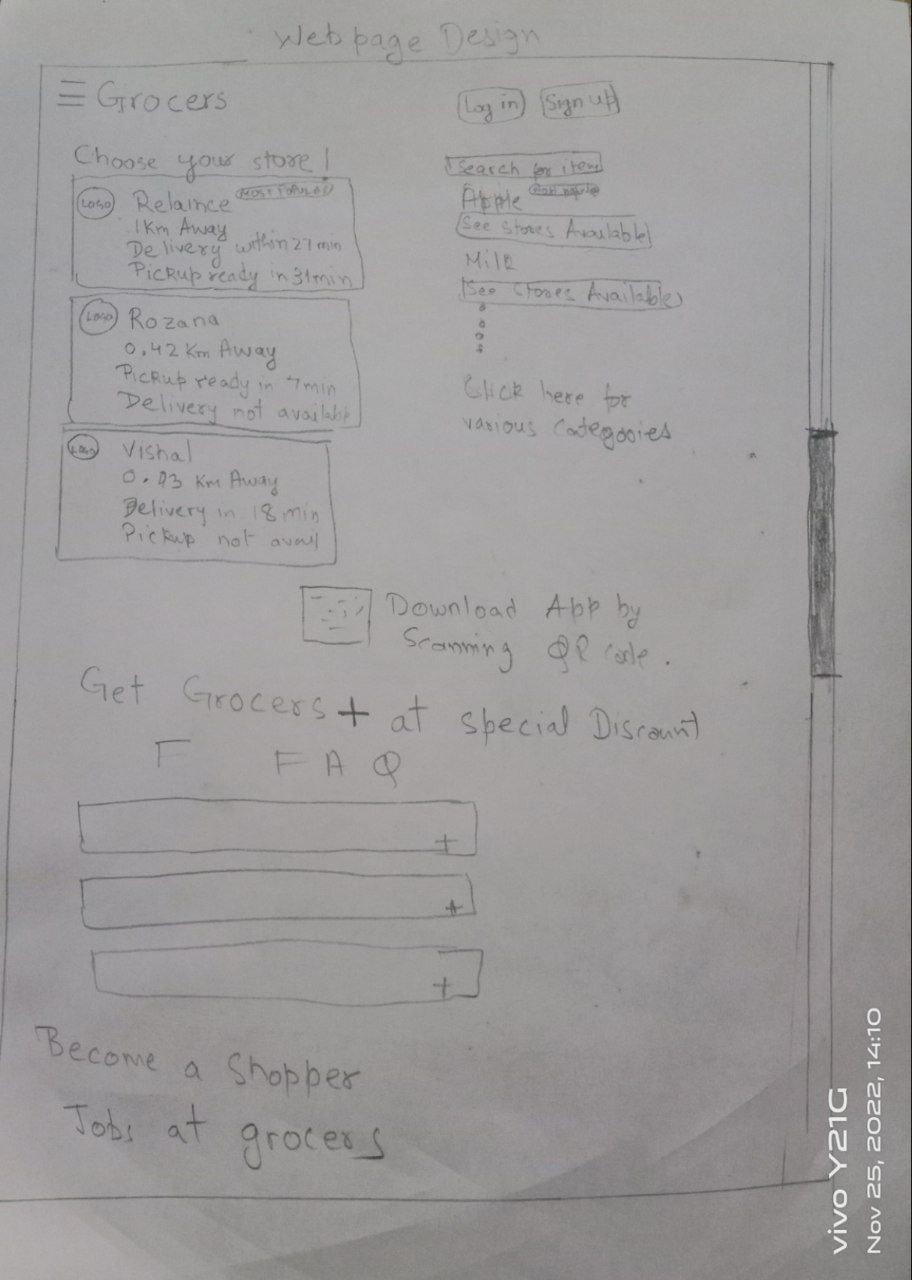 Web page Design
Grocers
Log in
Sign up
Choose your store!
LOGO
Relaince
MOST POPULAR
1Km Away
Delivery within 27 min
Pickup ready in 31min
LOGO
Rozana
0.42 Km Away
Pickup ready in 7min
Delivery not availabp
LOGO
Vishal
Km Away
Delivery in 18 min
Pickup not avail
Search for item
Apple
See Stores Available
Milk
See Stores Available
Click here for
various Categories
Download App by
Scanning QR code.
Get Grocers + at special Discount
F F A Q
+
+
+
Become a Shopper
Jobs at grocers
vivo Y21G
Nov 25, 2022, 14:10